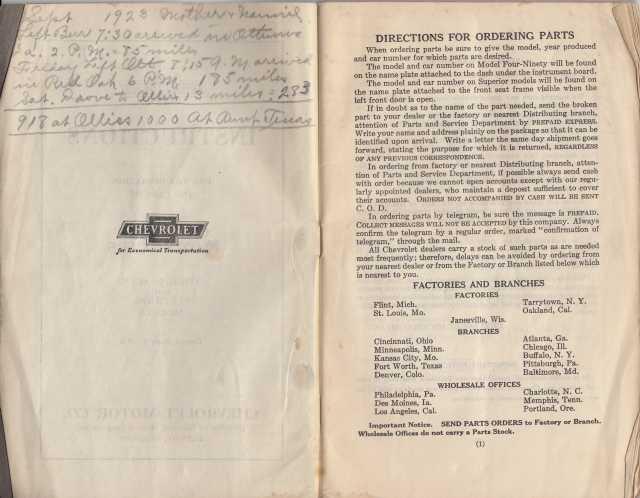 Sept 1923 Mother & Nannie
Left Burr 7:30 arrived in Ottumwa
2. P.M. 85 miles
Friday Left Ott 8:15 A.M arrived
in Red Oak 6 P.M. 185 miles
Sat. Drove to Allies 13 miles = 283
918 at Allies 1000 At Aunt
CHEVROLET
for Economical Transportation
DIRECTIONS FOR ORDERING PARTS
When ordering parts be sure to give the model, year produced
and car number for which parts are desired.
The model and car number on Model Four-Ninety will be found
on the name plate attached to the dash under the instrument board.
The model and car number on Superior models will be found on
the name plate attached to the front seat frame visible when the
left front door is open.
If in doubt as to the name of the part needed, send the broken
part to your dealer or the factory or nearest Distributing branch,
attention of Parts and Service Department by PREPAID EXPRESS.
Write your name and address plainly on the package so that it can be
identified upon arrival. Write a letter the same day shipment goes
forward, stating the purpose for which it is returned, REGARDLESS
OF ANY PREVIOUS CORRESPONDENCE.
In ordering from factory or nearest Distributing branch, atten-
tion of Parts and Service Department, if possible always send cash
with order because we cannot open accounts except with our regu-
larly appointed dealers, who maintain a deposit sufficient to cover
their accounts. ORDERS NOT ACCOMPANIED BY CASH WILL BE SENT
C. O. D.
In ordering parts by telegram, be sure the message is PREPAID.
COLLECT MESSAGES WILL NOT BE ACCEPTED by this company. Always
confirm the telegram by a regular order, marked "confirmation of
telegram," through the mail.
All Chevrolet dealers carry a stock of such parts as are needed
most frequently; therefore, delays can be avoided by ordering from
your nearest dealer or from the Factory or Branch listed below which
is nearest to you.
FACTORIES AND BRANCHES
FACTORIES
Flint, Mich. Tarrytown, N. Y.
St. Louis, Mo. Oakland, Cal.
Janesville, Wis.
BRANCHES
Cincinnati, Ohio Atlanta, Ga.
Minneapolis, Minn. Chicago, Ill.
Kansas City, Mo. Buffalo, N. Y.
Fort Worth, Texas Pittsburgh, Pa.
Denver, Colo. Baltimore, Md.
WHOLESALE OFFICES
Philadelphia, Pa. Charlotte, N. C.
Des Moines, Ia. Memphis, Tenn.
Los Angeles, Cal. Portland, Ore.
Important Notice. SEND PARTS ORDERS to Factory or Branch.
Wholesale Offices do not carry a Parts Stock.
(1)